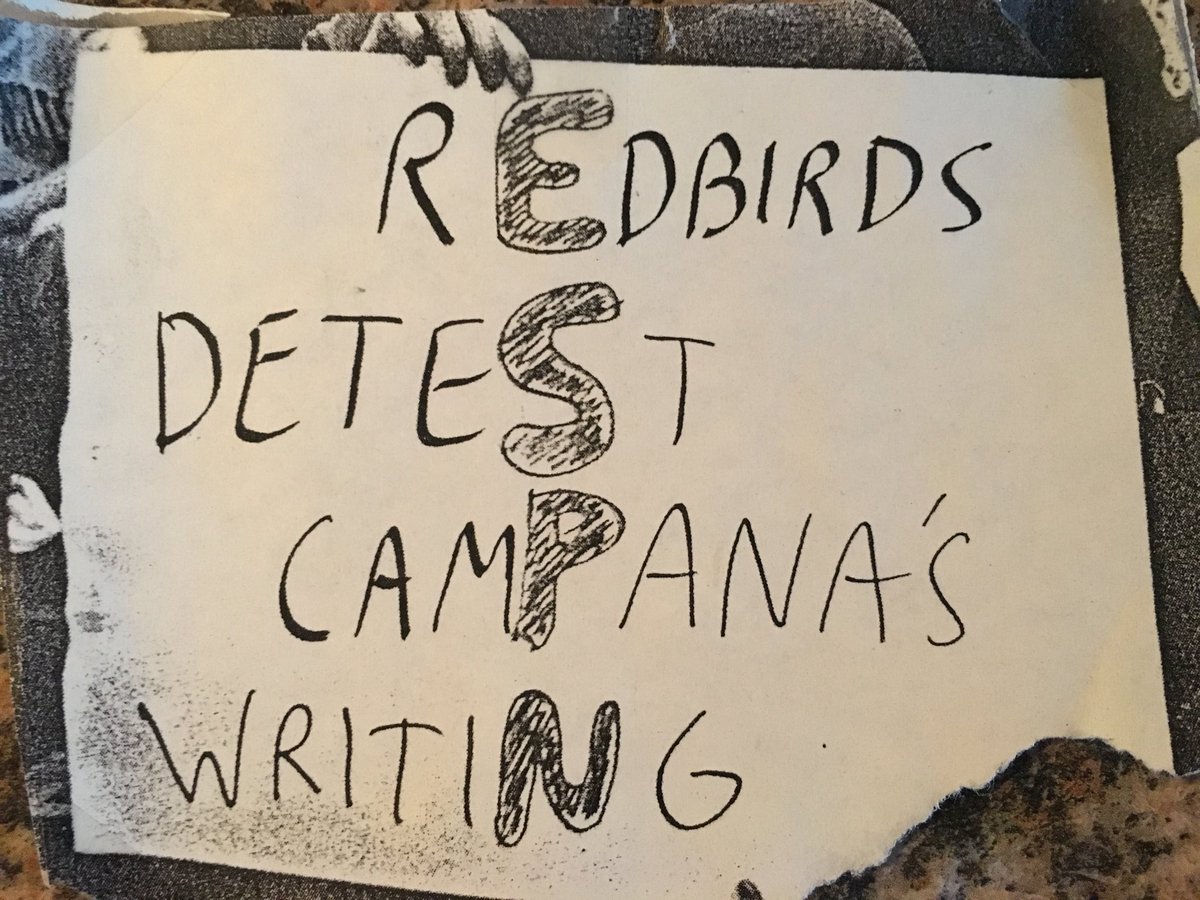 REDBIRDS
DETEST
CAMPANA'S
WRITING